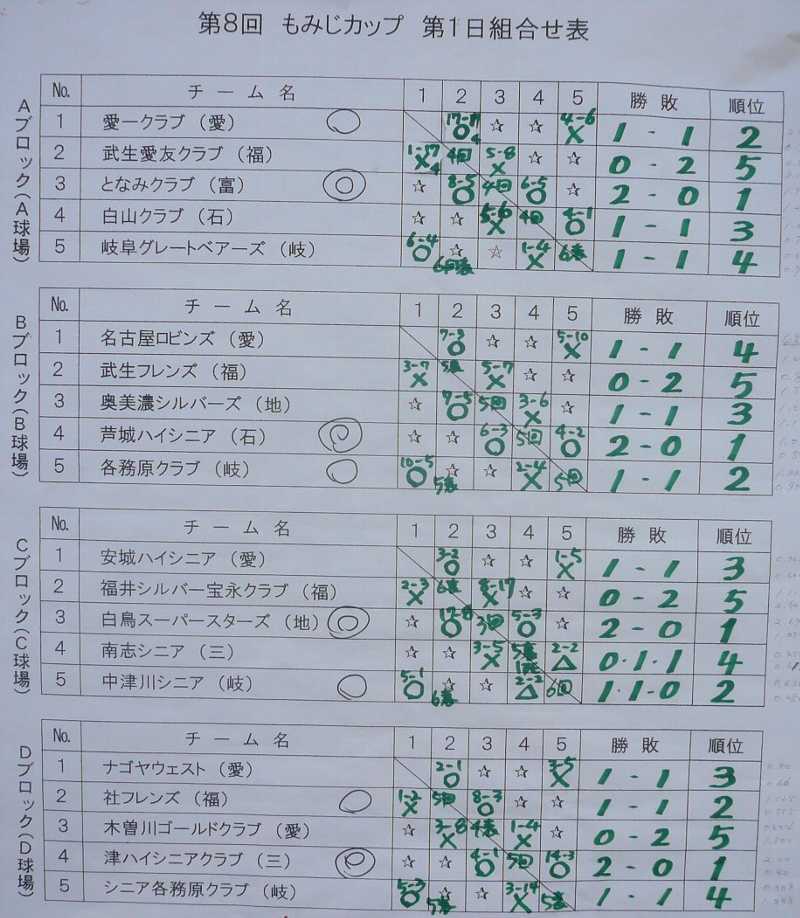 第8回 もみじカップ 第1日組合せ表
Aブロック(A球場)
No. チーム名 1 2 3 4 5 勝敗 順位
1 愛一クラブ(愛) 17-1 ○ 4 ☆ ☆ 4-6 × 1-1 2
2 武生愛友クラブ(福) 1-17 × 4 4回 5-8 × 0-2 5
3 となみクラブ(富) ☆ 8-5 ○ 4回 6-5 ○ ☆ 2-0 1
4 白山クラブ(石) ☆ ☆ 5-6 × 4回 4-1 ○ 1-1 3
5 岐阜グレートベアーズ(岐) 6-4 ○ ☆ 6回表 ☆ 1-4 × 6表 1-1 4
Bブロック(B球場)
No. チーム名 1 2 3 4 5 勝敗 順位
1 名古屋ロビンズ(愛) 7-3 ○ ☆ ☆ 5-10 × 1-1 4
2 武生フレンズ(福) 3-7 × 5表 5-7 × ☆ ☆ 0-2 5
3 奥美濃シルバーズ(地) ☆ 7-5 ○ 5回 3-6 × ☆ 1-1 3
4 芦城ハイシニア(石) ☆ ☆ 6-3 ○ 5回 4-2 ○ 2-0 1
5 各務原クラブ(岐) 10-5 ○ ☆ 5表 ☆ 2-4 × 5回 1-1 2
Cブロック(C球場)
No. チーム名 1 2 3 4 5 勝敗 順位
1 安城ハイシニア(愛) 3-2 ○ ☆ ☆ 1-5 × 1-1 3
2 福井シルバー宝永クラブ(福) 2-3 × 6表 8-17 × ☆ ☆ 0-2 5
3 白鳥スーパースターズ(地) ☆ 17-8 ○ 3回 5-3 ○ ☆ 2-0 1
4 南志シニア(三) ☆ ☆ 3-5 × 5表 2-2 △ 0・1・1 4
5 中津川シニア(岐) 5-1 ○ ☆ 6表 ☆ 2-2 △ 6回 1・1・0 2
Dブロック(D球場)
No. チーム名 1 2 3 4 5 勝敗 順位
1 ナゴヤウェスト(愛) 2-1 ○ ☆ ☆ 3-5 × 1-1 3
2 社フレンズ(福) 1-2 × 5回 8-3 ○ ☆ ☆ 1-1 2
3 木曽川ゴールドクラブ(愛) ☆ 3-8 × 4表 1-4 × ☆ 0-2 5
4 津ハイシニアクラブ(三) ☆ ☆ 4-1 ○ 5回 14-3 ○ 2-0 1
5 シニア各務原クラブ(岐) 5-3 ○ ☆ 5表 ☆ 3-14 × 5表 1-1 4